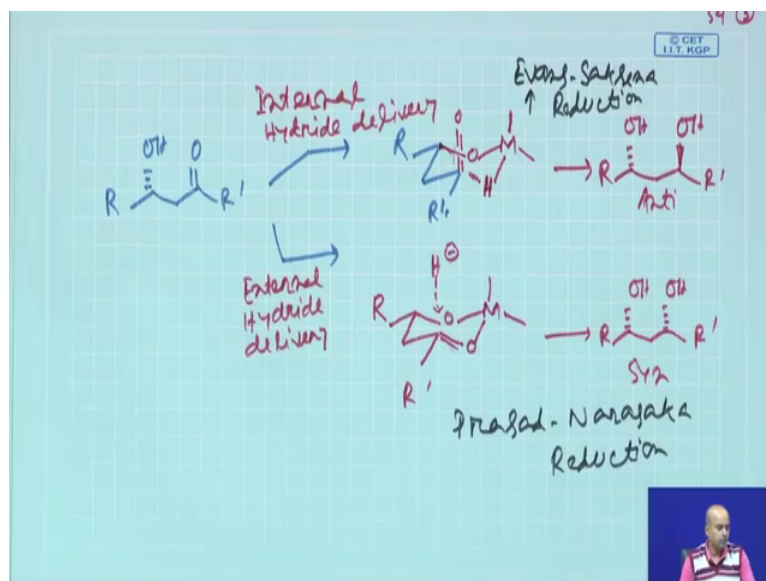 54
© CET
I.I.T. KGP
Evans-Saksena
Reduction
Internal
Hydride delivery
OH O
R R'
O
R O M
H
R'
OH OH
R R'
Anti
External
Hydride
delivery
H⊖
R O M
O
R'
OH OH
R R'
Syn
Prasad-Narasaka
Reduction